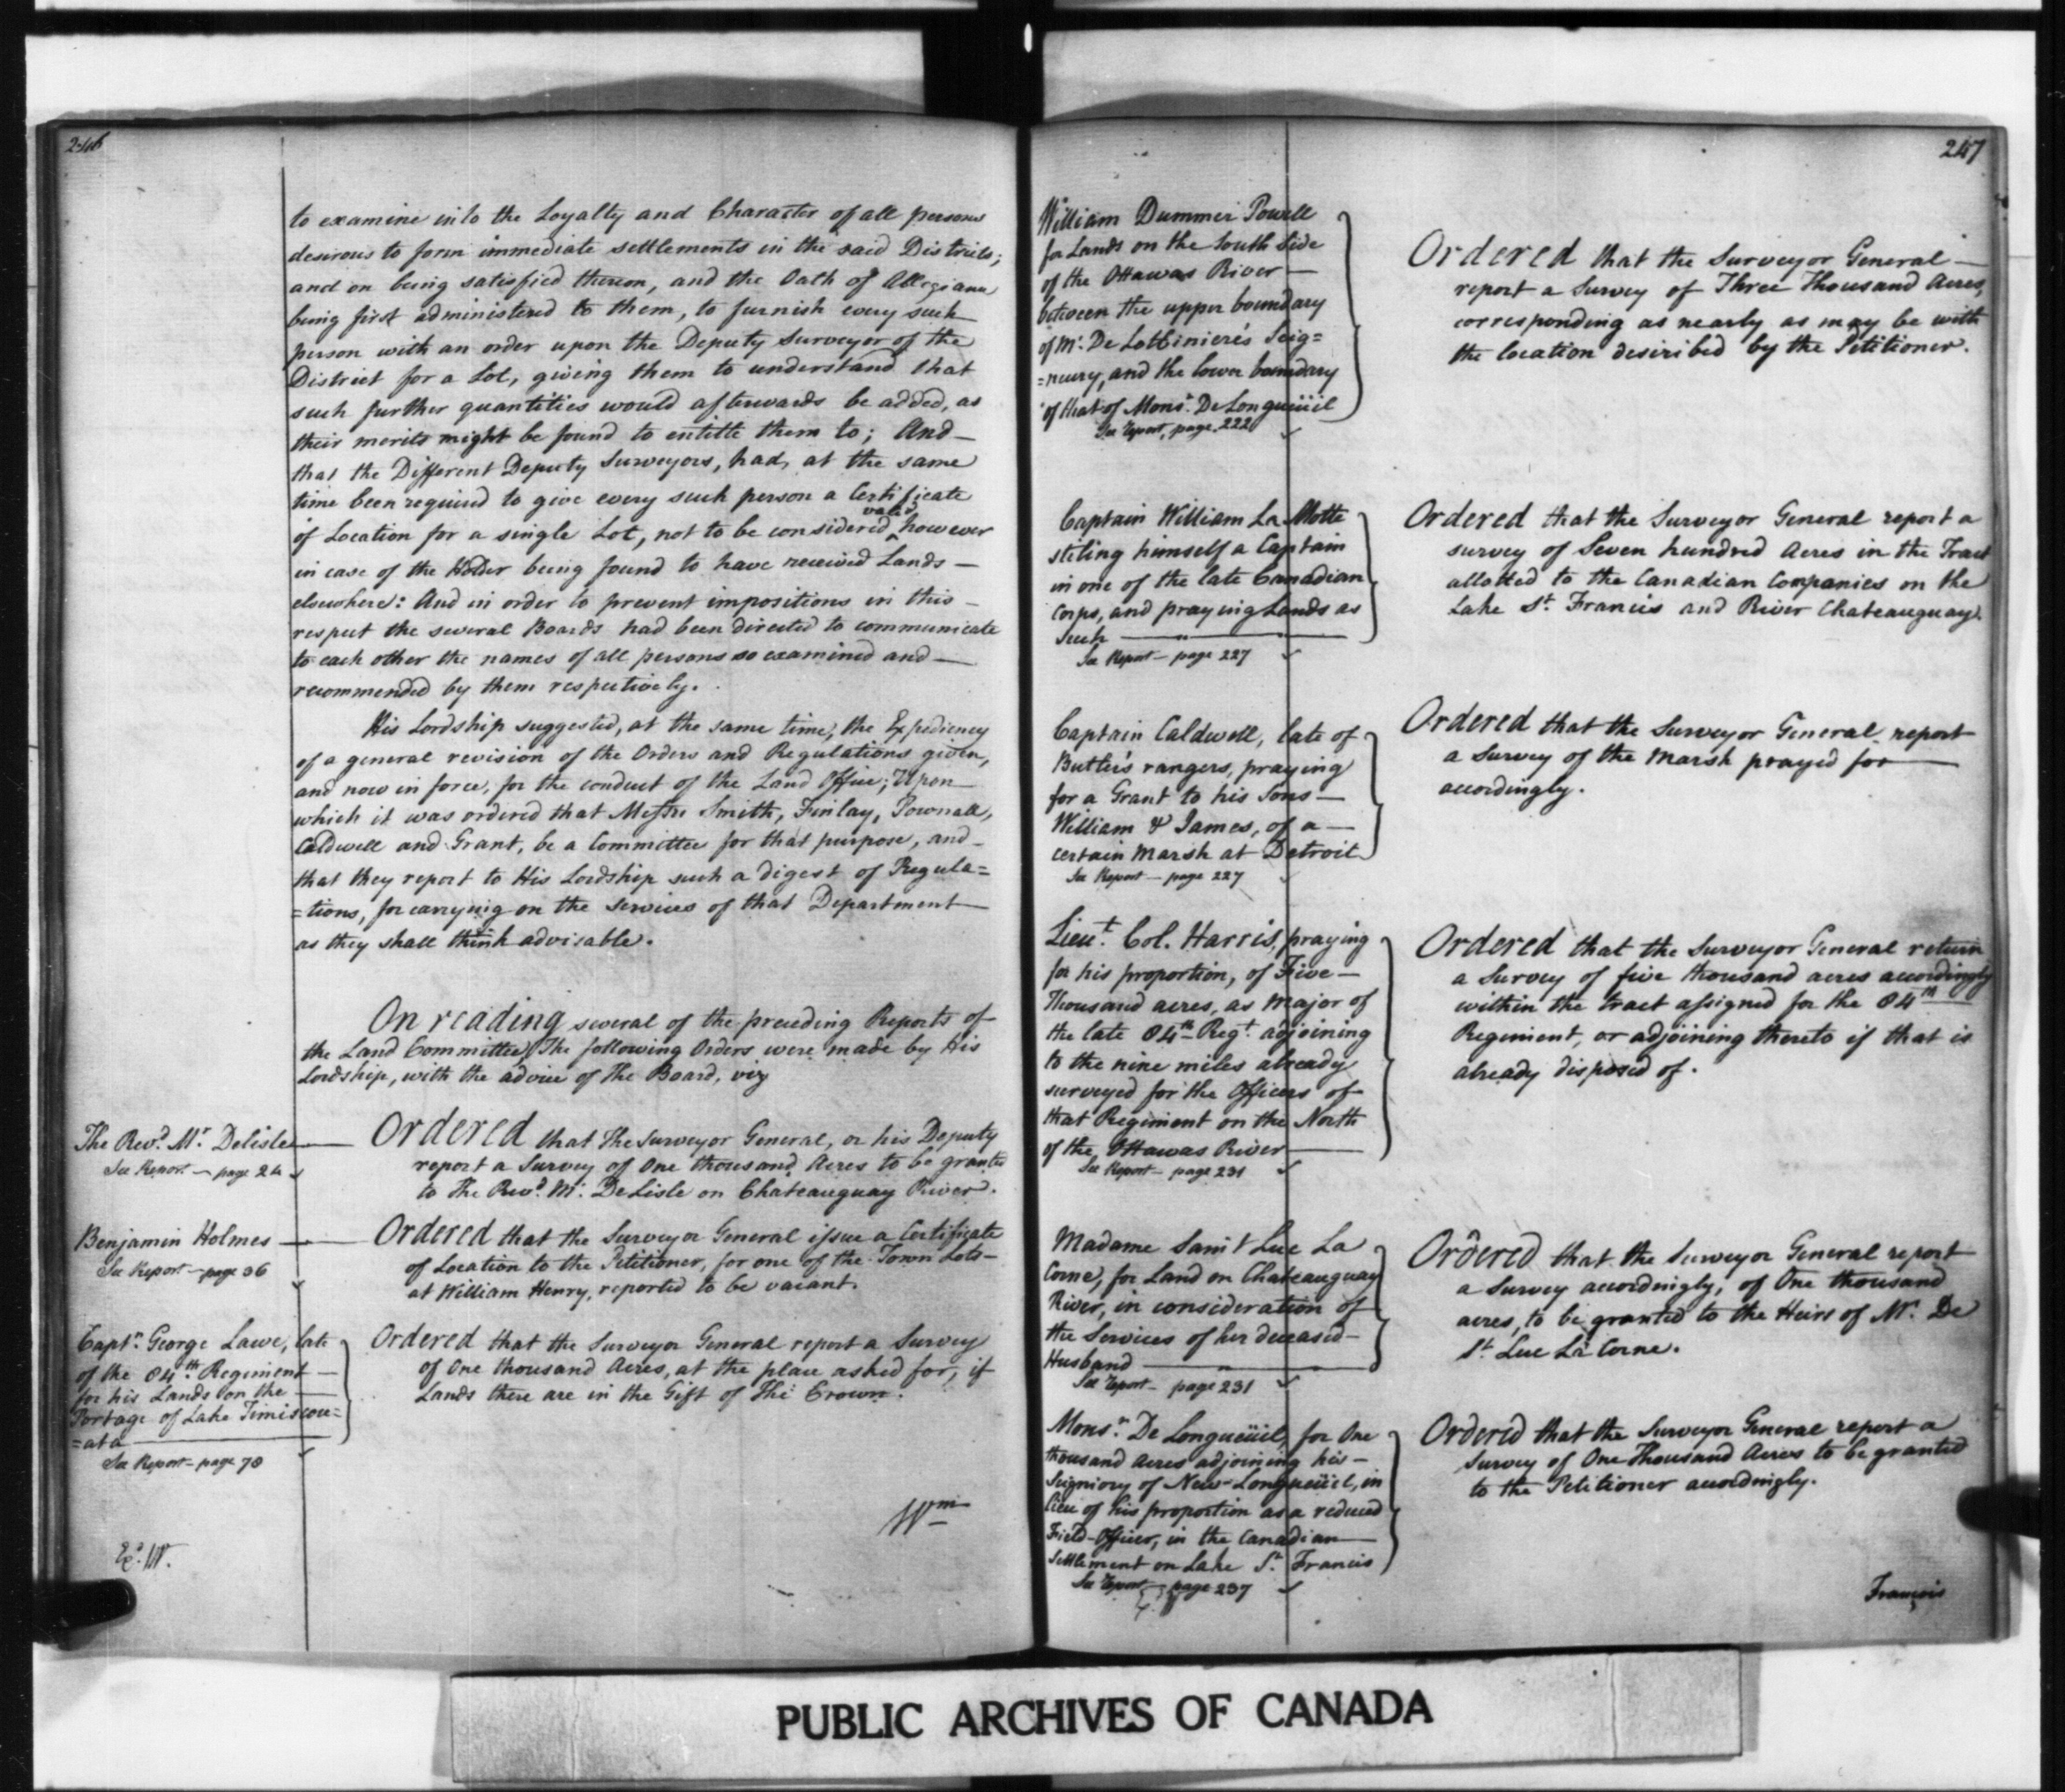 246
to examine into the Loyalty and Character of all persons
desirous to form immediate settlements in the said Districts;
and on being satisfied thereon, and the Oath of Allegiance
being first administered to them, to furnish every such
person with an order upon the Deputy Surveyor of the
District for a Lot, giving them to understand that
such further quantities would afterwards be added, as
their merits might be found to entitle them to; And—
that the Different Deputy Surveyors, had, at the same
time been required to give every such person a Certificate
of Location for a single Lot, not to be considered valid, however
in case of the Holder being found to have received Lands—
elsewhere: And in order to prevent impositions in this—
respect the several Boards had been directed to communicate
to each other the names of all persons so examined and—
recommended by them respectively.
His Lordship suggested, at the same time, the Expediency
of a general revision of the Orders and Regulations given,
and now in force, for the conduct of the Land Office; Upon—
which it was ordered that Messrs Smith, Finlay, Pownall,
Caldwell and Grant, be a Committee for that purpose, and—
that they report to His Lordship such a digest of Regula=
=tions, for carrying on the services of that Department—
as they shall think advisable.
On reading several of the preceding Reports of
the Land Committee, The following Orders were made by His
Lordship, with the advice of The Board, viz
The Revd. Mr Delisle—
See Report — page 24
Ordered that The Surveyor General, or his Deputy
report a Survey of One thousand Acres to be granted
to The Revd. Mr. DeLisle on Chateauguay River.
Benjamin Holmes—
See Report — page 36
Ordered that the Surveyor General issue a Certificate
of Location to the Petitioner, for one of the Town Lots—
at William Henry, reported to be vacant.
Captn. George Lawe, late
of the 84th Regiment—
for his Lands on the—
Portage of Lake Timiscou=
=ata—
See Report — page 78
Ordered that the Surveyor General report a Survey
of One thousand Acres, at the place asked for, if
Lands there are in the Gift of The Crown.
Wm
Exd. W.
247
William Dummer Powell
for Lands on the South Side
of the Ottawas River—
between the upper boundary
of Mr. De Lotbinieres Seig=
=neury, and the lower boundary
of that of Monsr. De Longueüil
See Report, page 222
Ordered that the Surveyor General—
report a Survey of Three Thousand Acres,
corresponding as nearly as may be with
the location desiribed by the Petitioner.
Captain William La Motte
stiling himself a Captain
in one of the late Canadian
Corps, and praying Lands as
Such—
See Report — page 227
Ordered that the Surveyor General report a
survey of Seven hundred Acres in the Tract
allotted to the Canadian Companies on the
Lake St. Francis and River Chateauguay.
Captain Caldwell, late of
Butler's rangers, praying
for a Grant to his Sons—
William & James, of a—
certain Marsh at Detroit
See Report — page 227
Ordered that the Surveyor General report
a Survey of the Marsh prayed for—
accordingly.
Lieut. Col. Harris, praying
for his proportion, of Five—
Thousand acres, as Major of
the late 84th Regt. adjoining
to the nine miles already
surveyed for the Officers of
that Regiment on the North
of the Ottawas River—
See Report — page 231
Ordered that the Surveyor General return
a Survey of five thousand acres accordingly
within the tract assigned for the 84th
Regiment, or adjoining thereto if that is
already disposed of.
Madame Saint Luc La
Corne, for Land on Chateauguay
River, in consideration of
the Services of her deceased—
Husband—
See Report — page 231
Ordered that the Surveyor General report
a Survey accordingly, of One thousand
acres, to be granted to the Heirs of Mr. De
St. Luc La Corne.
Monsr. De Longueüil, for One
thousand Acres adjoining his—
Seigniory of New-Longueüil, in
lieu of his proportion as a reduced
Field-Officer, in the Canadian—
Settlement on Lake St. Francis
See Report — page 237
Ordered that the Surveyor General report a
Survey of One Thousand Acres to be granted
to the Petitioner accordingly.
François
PUBLIC ARCHIVES OF CANADA